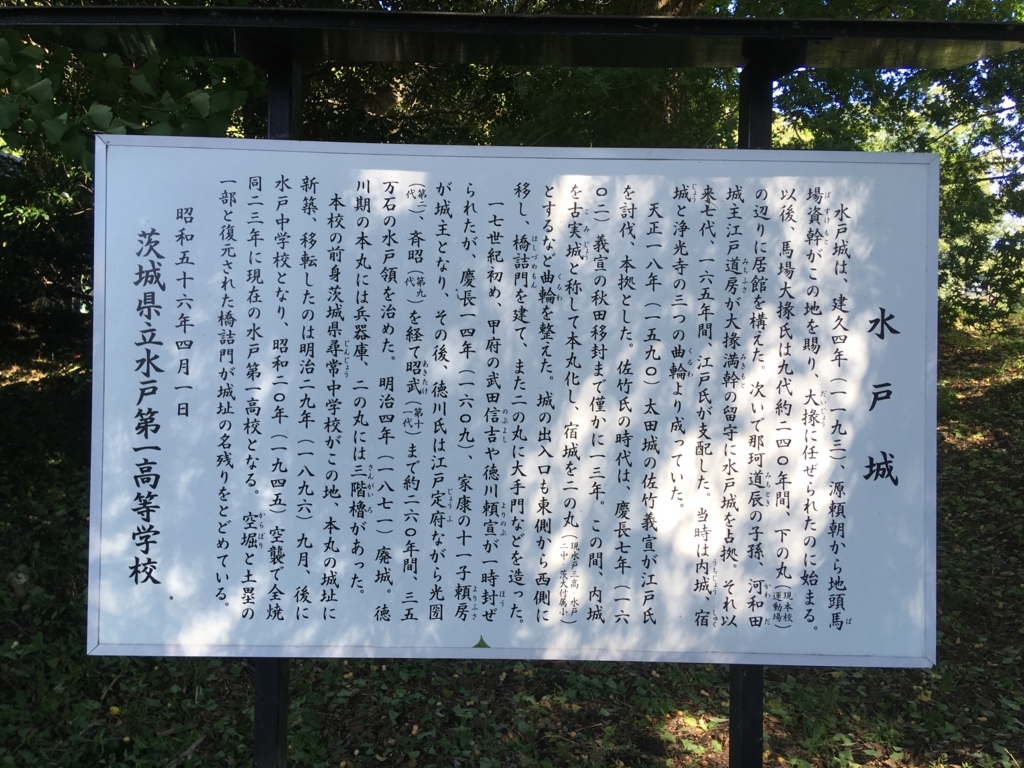 水戸城
水戸城は、建久四年（一一九三）、源頼朝から地頭馬
場資幹がこの地を賜り、大掾に任ぜられたのに始まる。
以後、馬場大掾氏は九代約二四〇年間、下の丸（現本校運動場）
の辺りに居館を構えた。次いで那珂道辰の子孫、河和田
城主江戸道房が大掾満幹の留守に水戸城を占拠。それ以
来七代、一六五年間、江戸氏が支配した。当時は内城、宿
城と浄光寺の三つの曲輪より成っていた。
天正一八年（一五九〇）太田城の佐竹義宣が江戸氏
を討伐、本拠とした。佐竹氏の時代は、慶長七年（一六
〇二）義宣の秋田移封まで僅かに一三年。この間、内城
を古実城と称して本丸化し、宿城を二の丸（現水戸三高 水戸二中 茨大付属小）
とするなど曲輪を整えた。城の出入口も東側から西側に
移し、橋詰門を建て、また二の丸に大手門などを造った。
一七世紀初め、甲府の武田信吉や徳川頼宣が一時封ぜ
られたが、慶長一四年（一六〇九）、家康の十一子頼房
が城主となり、その後、徳川氏は江戸定府ながら光圀
（第二代）、斉昭（第九代）を経て昭武（第十一代）まで約二六〇年間、三五
万石の水戸領を治めた。明治四年（一八七一）廃城。徳
川期の本丸には兵器庫、二の丸には三階櫓があった。
本校の前身茨城県尋常中学校がこの地、本丸の城址に
新築、移転したのは明治二九年（一八九六）九月、後に
水戸中学校となり、昭和二〇年（一九四五）空襲で全焼
同二三年に現在の水戸第一高校となる。空堀と土塁の
一部と復元された橋詰門が城址の名残りをとどめている。
昭和五十六年四月一日
茨城県立水戸第一高等学校